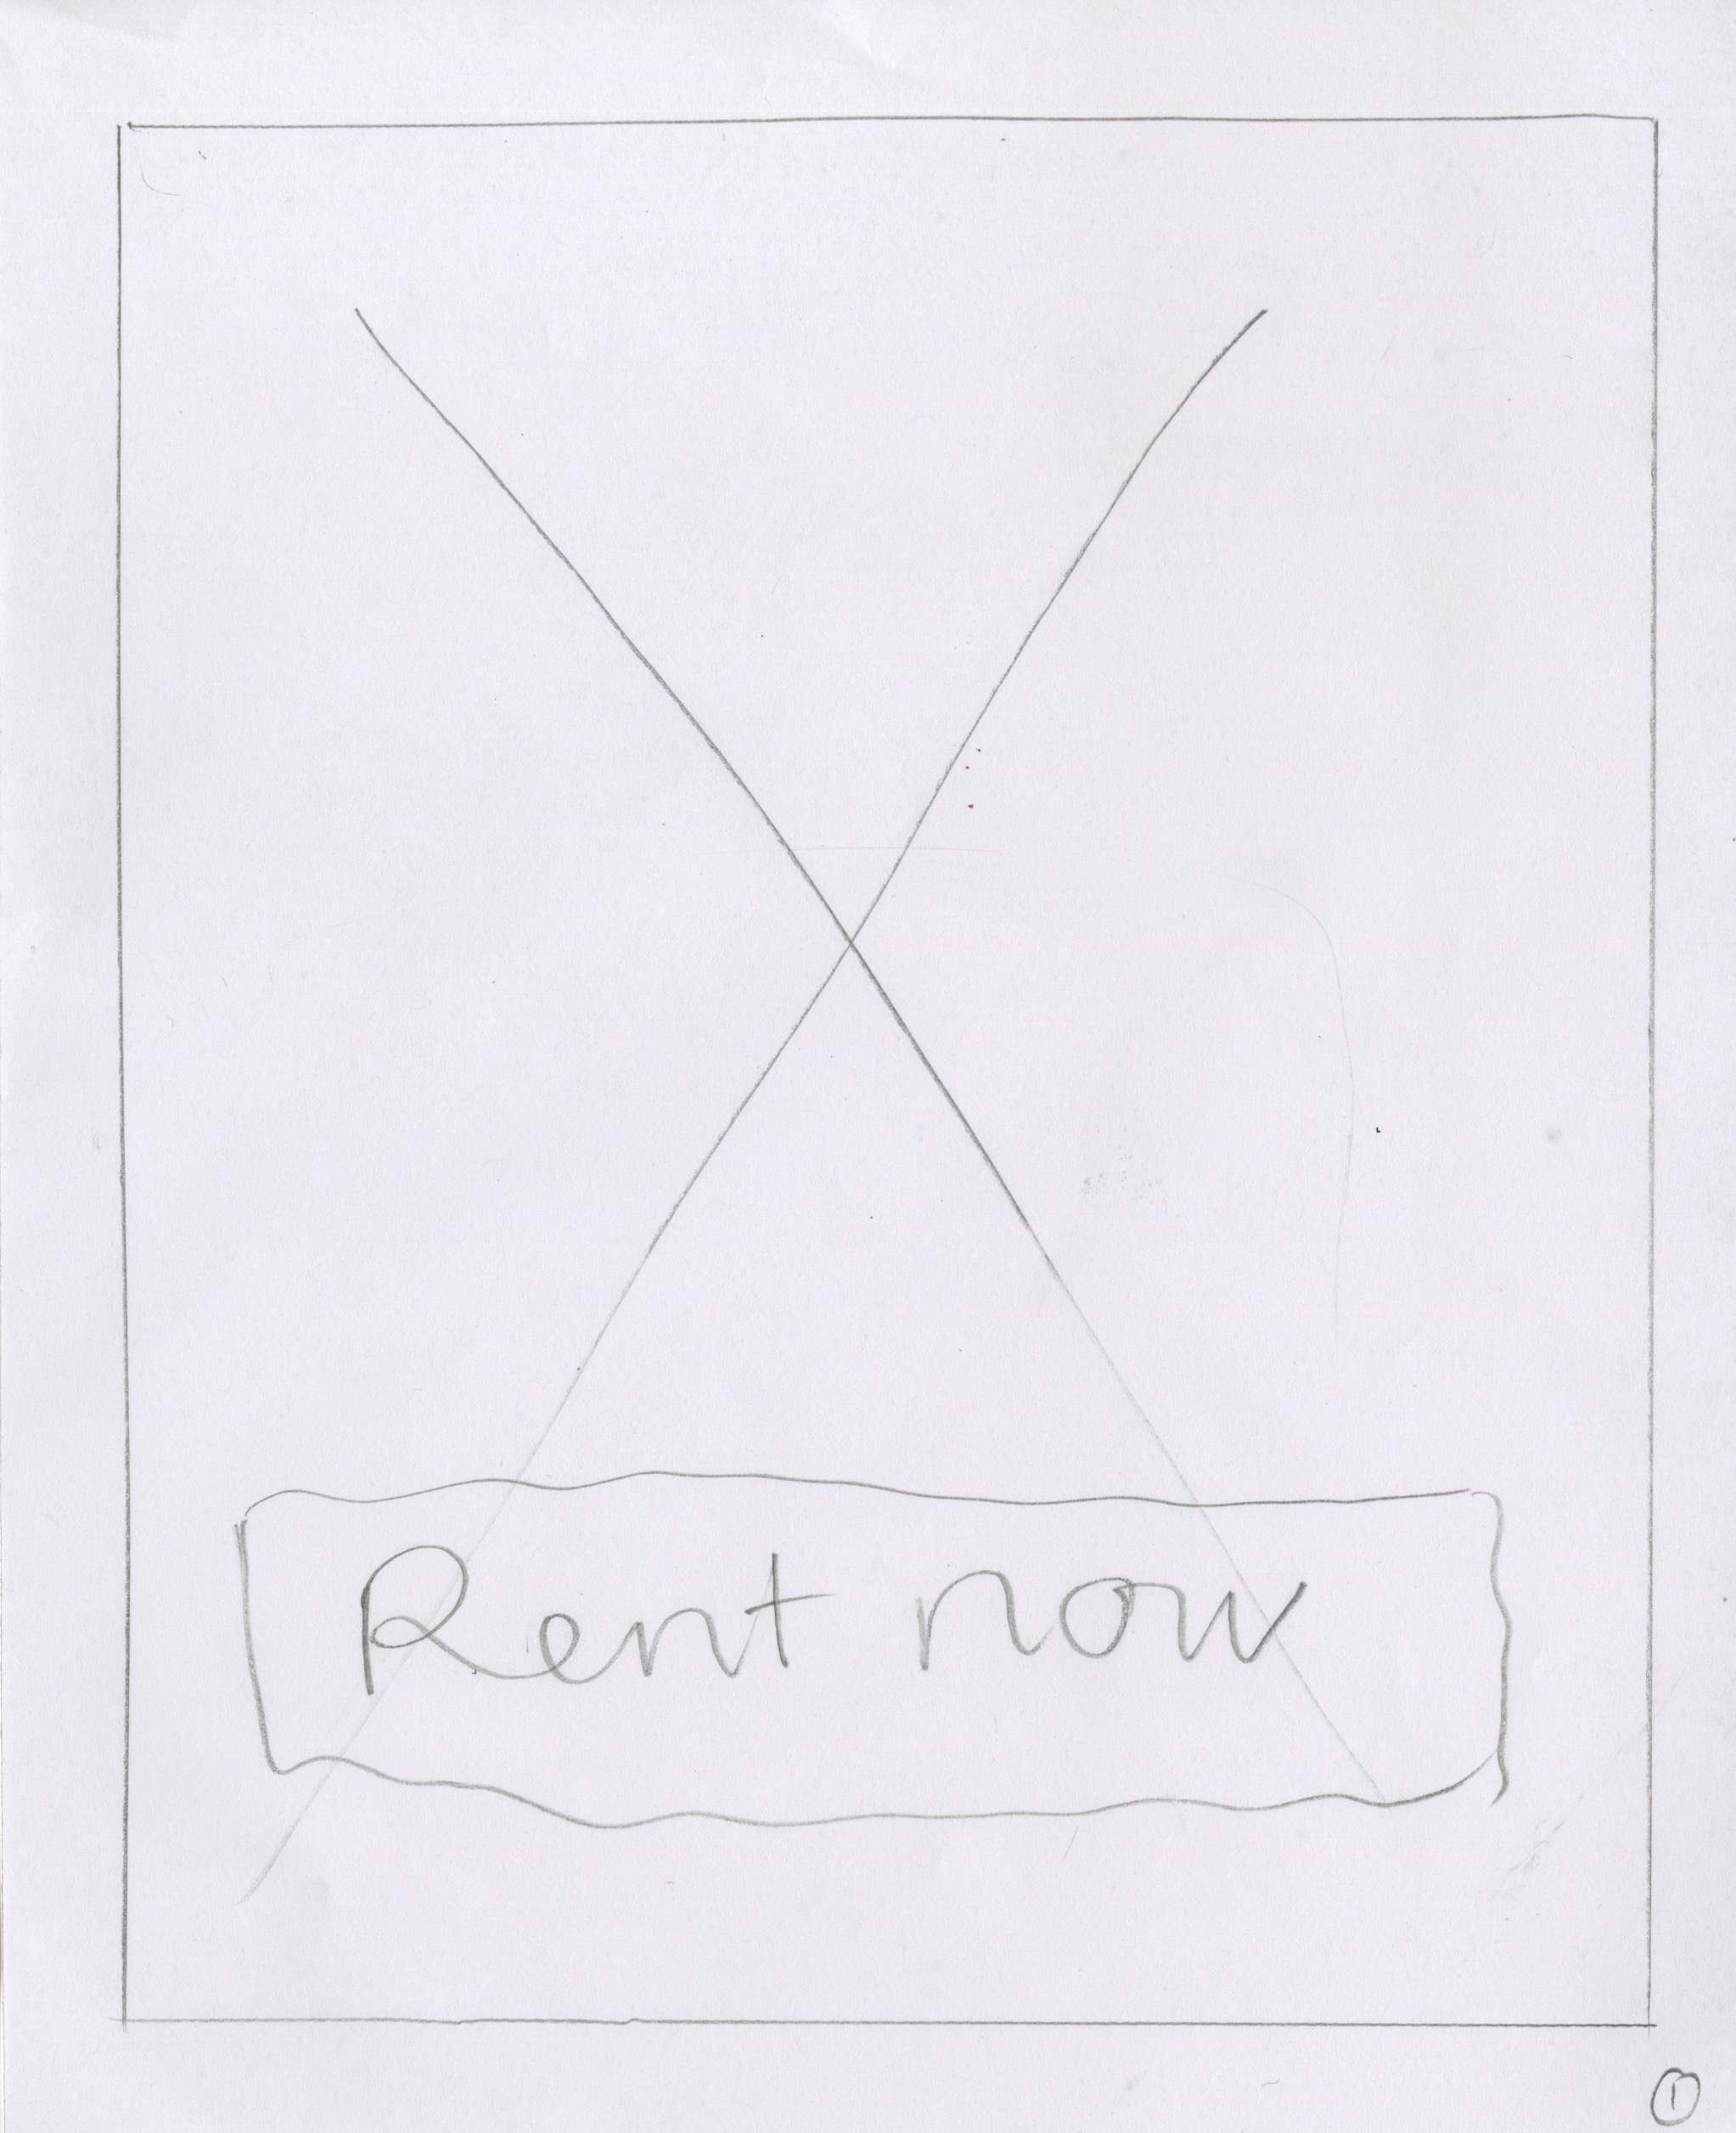 Rent now
1